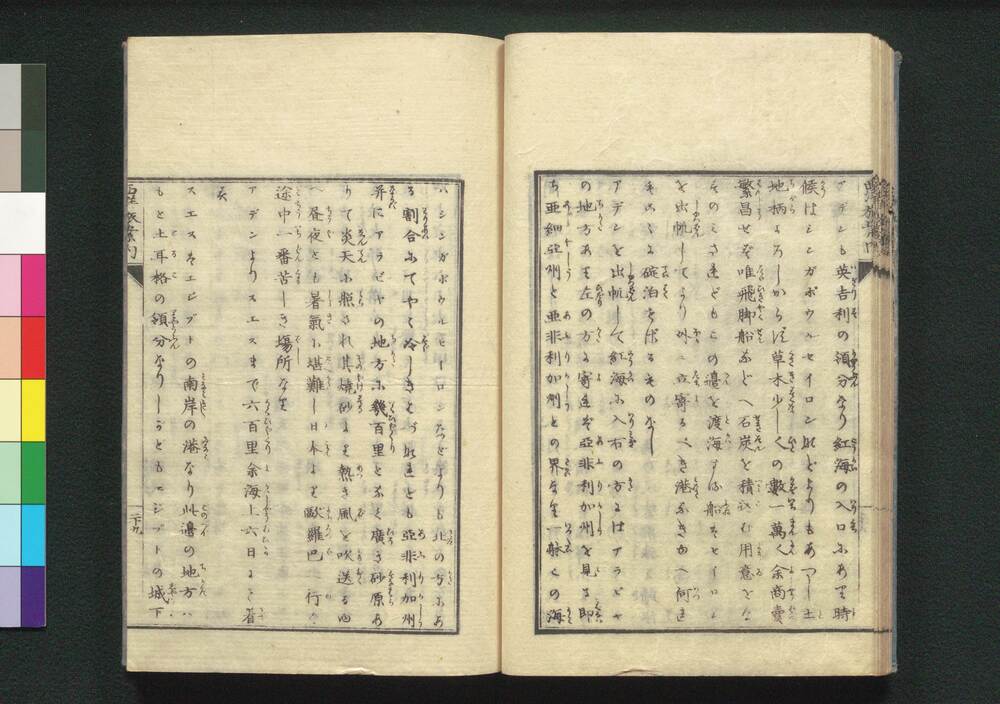 アデンも英吉利の領分なり紅海の入口にあり時
候はシンガポウルセイロンなどよりもあつし土
地柄よろしからず草木少しく人の數一萬人余商賣
繁昌せず唯飛脚船などへ石炭を積込む用意をな
すのみされどもこの邊を渡海する船はセイロン
を出帆してより外に立寄るべき港なきゆへ何れ
もこゝに碇泊せざるものなし
アデンを出帆して紅海に入右の方にはアラビヤ
の地方あり左の方に寄れば亞非利加州を見る即
ち亞細亞州と亞非利加州との界なり一脉の海
ハシンガポウルセーロンなどよりも北の方にあ
る割合にてやゝ冷しきはづなれども亞非利加州
并にアラビヤの地方に幾百里となく廣き砂原あ
りて炎天に照され其燒砂より熱き風を吹送るゆ
へ昼夜とも暑氣に堪難し日本より歐羅巴へ行く
途中一番苦しき塲所なり
アデンよりスエスまで六百里余海上六日にて着
す
スエスはエジプトの南岸の港なり此邊の地方ハ
もと土耳格の領分なりしかどもエジプトの城下
西洋旅案内
二十九